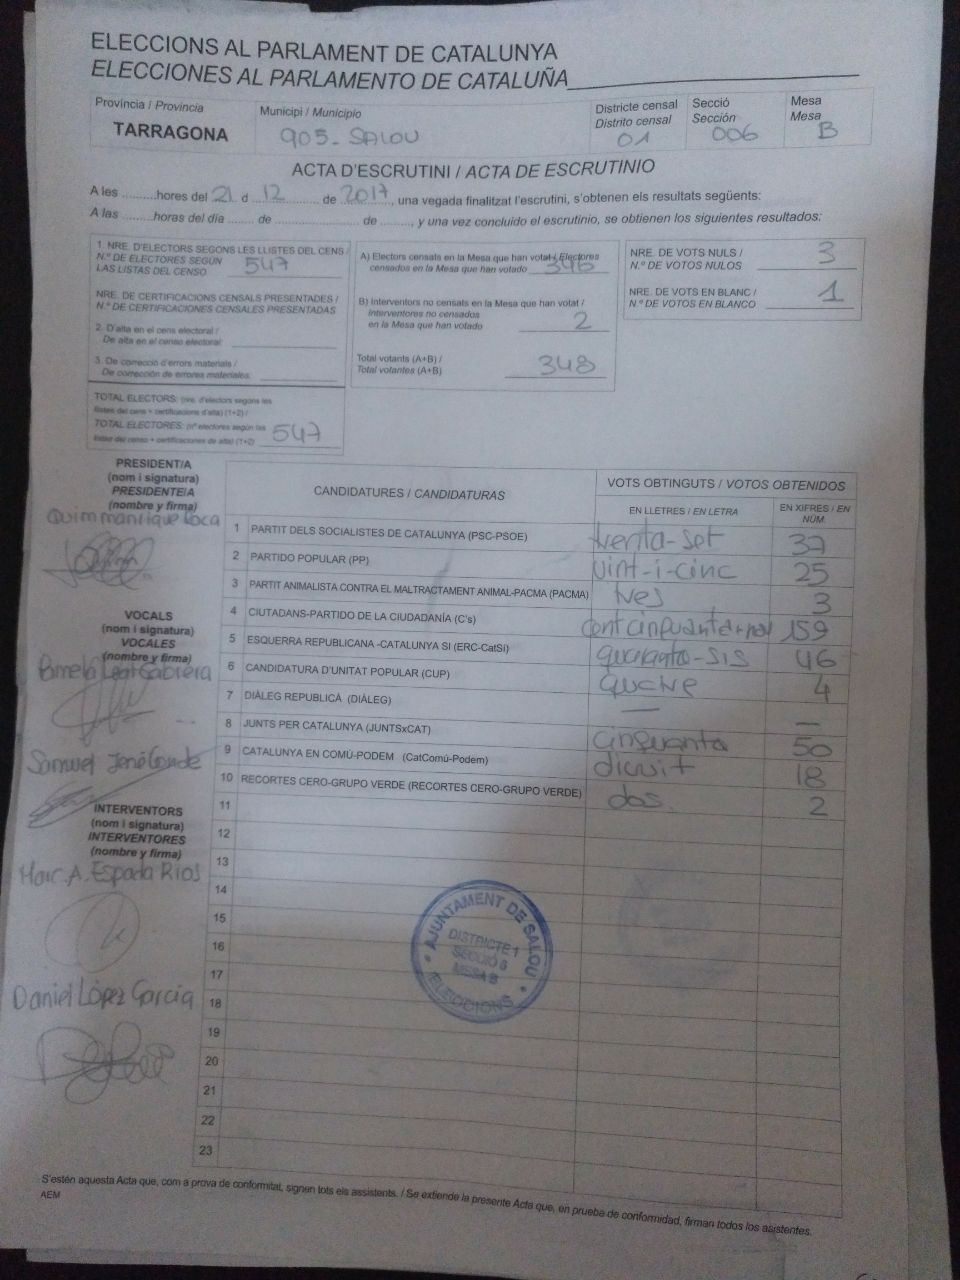 ELECCIONS AL PARLAMENT DE CATALUNYA
ELECCIONES AL PARLAMENTO DE CATALUÑA
Província / Provincia
TARRAGONA
Municipi / Municipio
905-SALOU
Districte censal
Distrito censal
01
Secció
Sección
006
Mesa
Mesa
B
ACTA D'ESCRUTINI / ACTA DE ESCRUTINIO
A les ..........hores del 21 d ... 12 ........ de 2017, una vegada finalitzat l'escrutini, s'obtenen els resultats següents:
A las ..........horas del día ........ de ........................... de ........., y una vez concluido el escrutinio, se obtienen los siguientes resultados:
1. NRE. D'ELECTORS SEGONS LES LLISTES DEL CENS /
N.º DE ELECTORES SEGÚN
LAS LISTAS DEL CENSO 547
NRE. DE CERTIFICACIONS CENSALS PRESENTADES /
N.º DE CERTIFICACIONES CENSALES PRESENTADAS
2. D'alta en el cens electoral /
De alta en el censo electoral:
3. De correcció d'errors materials /
De corrección de errores materiales:
TOTAL ELECTORS: (nre. d'electors segons les
llistes del cens + certificacions d'alta) (1+2) /
TOTAL ELECTORES: (nº electores según las
listas del censo + certificaciones de alta) (1+2) 547
A) Electors censats en la Mesa que han votat / Electores
censados en la Mesa que han votado 346
B) Interventors no censats en la Mesa que han votat /
Interventores no censados
en la Mesa que han votado 2
Total votants (A+B) /
Total votantes (A+B) 348
NRE. DE VOTS NULS /
N.º DE VOTOS NULOS 3
NRE. DE VOTS EN BLANC /
N.º DE VOTOS EN BLANCO 1
PRESIDENT/A
(nom i signatura)
PRESIDENTE/A
(nombre y firma)
Quim manrique Roca
VOCALS
(nom i signatura)
VOCALES
(nombre y firma)
Pamela Leon Cabrera
Samuel Conde
INTERVENTORS
(nom i signatura)
INTERVENTORES
(nombre y firma)
Marc. A. Espada Rios
Daniel López Garcia
CANDIDATURES / CANDIDATURAS
VOTS OBTINGUTS / VOTOS OBTENIDOS
EN LLETRES / EN LETRA
EN XIFRES / EN NÚM.
1 PARTIT DELS SOCIALISTES DE CATALUNYA (PSC-PSOE) trenta-set 37
2 PARTIDO POPULAR (PP) vint-i-cinc 25
3 PARTIT ANIMALISTA CONTRA EL MALTRACTAMENT ANIMAL-PACMA (PACMA) tres 3
4 CIUTADANS-PARTIDO DE LA CIUDADANÍA (C's) cent cinquanta-nou 159
5 ESQUERRA REPUBLICANA -CATALUNYA SI (ERC-CatSí) quaranta-sis 46
6 CANDIDATURA D'UNITAT POPULAR (CUP) quatre 4
7 DIÀLEG REPUBLICÀ (DIÀLEG) — —
8 JUNTS PER CATALUNYA (JUNTSxCAT) cinquanta 50
9 CATALUNYA EN COMÚ-PODEM (CatComú-Podem) divuit 18
10 RECORTES CERO-GRUPO VERDE (RECORTES CERO-GRUPO VERDE) dos. 2
11
12
13
14
15
16
17
18
19
20
21
22
23
AJUNTAMENT DE SALOU
DISTRICTE 1
SECCIÓ 6
MESA B
ELECCIONS
S'estén aquesta Acta que, com a prova de conformitat, signen tots els assistents. / Se extiende la presente Acta que, en prueba de conformidad, firman todos los asistentes.
AEM